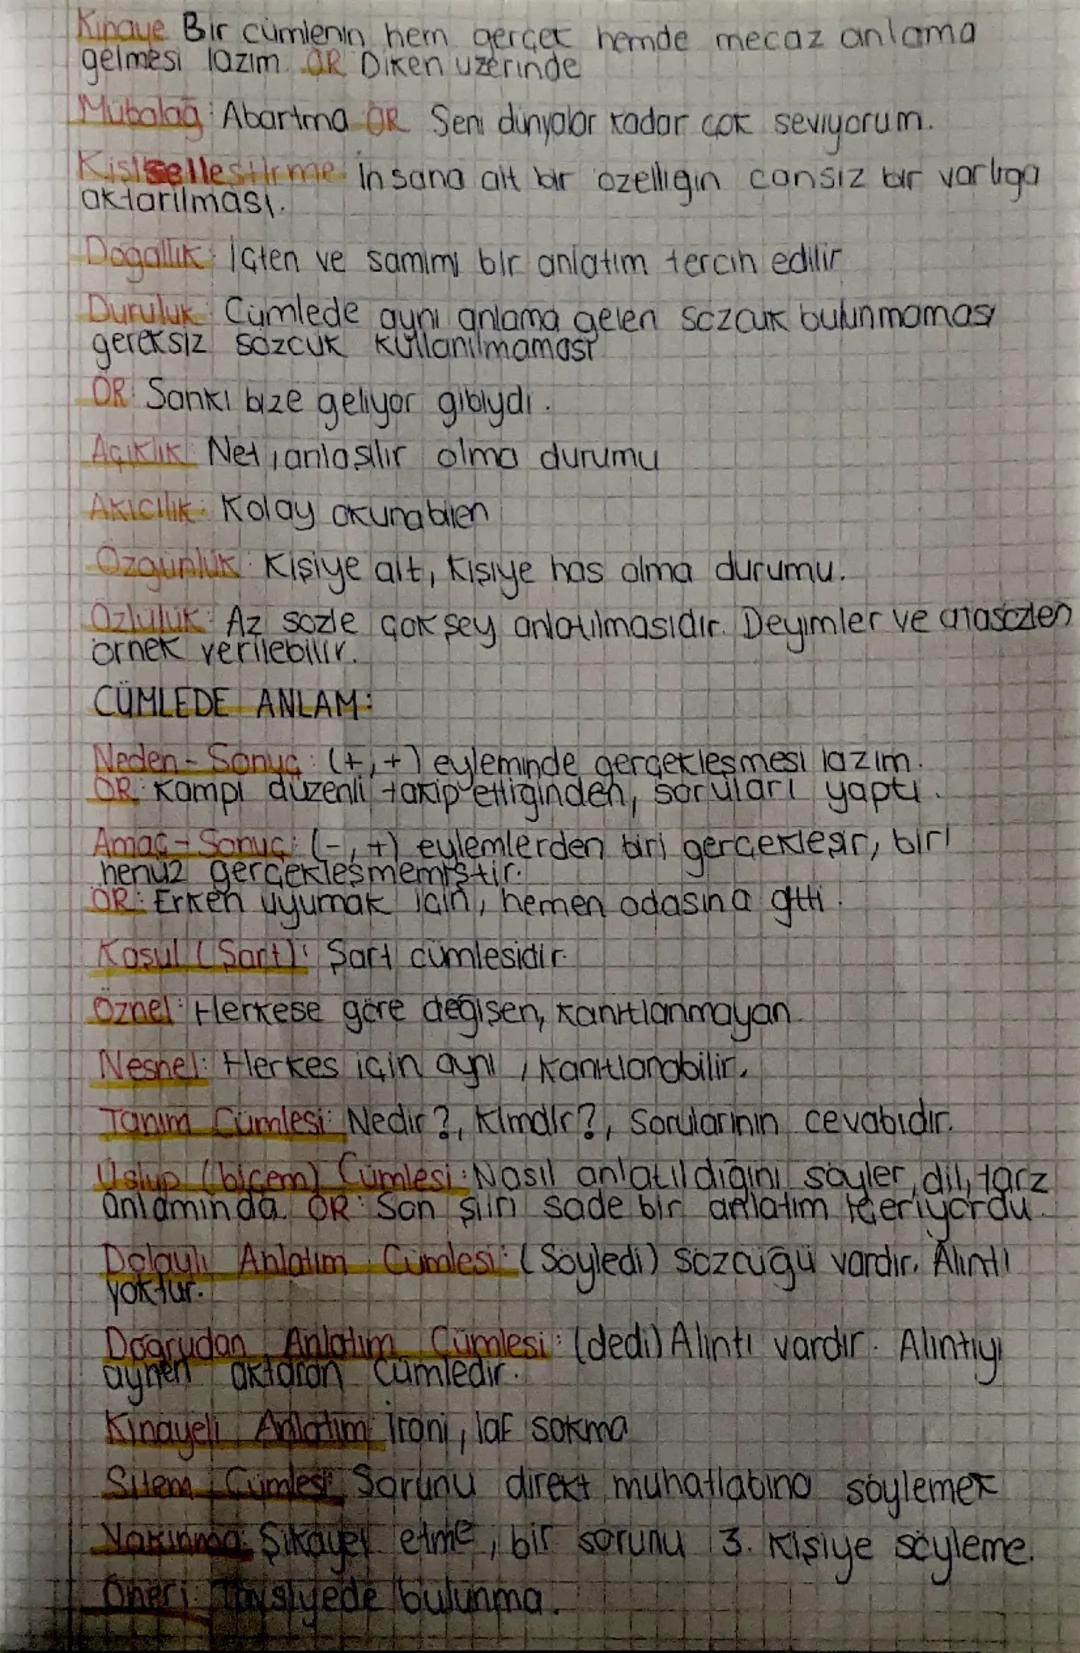 Kinaye Bir cümlenin hem gerçek hemde mecaz anlama
gelmesi lazım ÖR Diken üzerinde
Mübalağ: Abartma ÖR Seni dünyalar kadar çok seviyorum.
Kişiselleştirme: İnsana ait bir özelliğin cansız bir varlığa
aktarılması.
Doğallık: İçten ve samimi bir anlatım tercih edilir
Duruluk: Cümlede aynı anlama gelen sözcük bulunmaması
gereksiz sözcük kullanılmaması
ÖR: Sanki bize geliyor gibiydi.
Açıklık: Net, anlaşılır olma durumu
Akıcılık: Kolay okunabilen
Özgünlük: Kişiye ait, kişiye has olma durumu.
Özlülük: Az sözle çok şey anlatılmasıdır. Deyimler ve atasözleri
örnek verilebilir.
CÜMLEDE ANLAM:
Neden-Sonuç: (+,+) eyleminde gerçekleşmesi lazım.
ÖR: Kampı düzenli takip ettiğinden, soruları yaptı.
Amaç-Sonuç: (-,+) eylemlerden biri gerçekleşir, biri
henüz gerçekleşmemiştir.
ÖR: Erken uyumak için, hemen odasına gitti.
Koşul (Şart): Şart cümlesidir.
Öznel: Herkese göre değişen, kanıtlanmayan
Nesnel: Herkes için aynı, kanıtlanabilir.
Tanım Cümlesi: Nedir?, Kimdir?, Sorularının cevabıdır.
Üslup (biçem) Cümlesi: Nasıl anlatıldığını söyler, dil, tarz
anlamında. ÖR: Son şiiri sade bir anlatım içeriyordu.
Dolaylı Anlatım Cümlesi: (Söyledi) Sözcüğü vardır. Alıntı
yoktur.
Doğrudan Anlatım Cümlesi: (dedi) Alıntı vardır. Alıntıyı
aynen aktaran Cümledir.
Kinayeli Anlatım: İroni, laf sokma
Sitem Cümlesi: Sorunu direkt muhattabına söylemek
Yakınma: Şikayet etme, bir sorunu 3. kişiye söyleme.
Öneri: Tavsiyede bulunma.